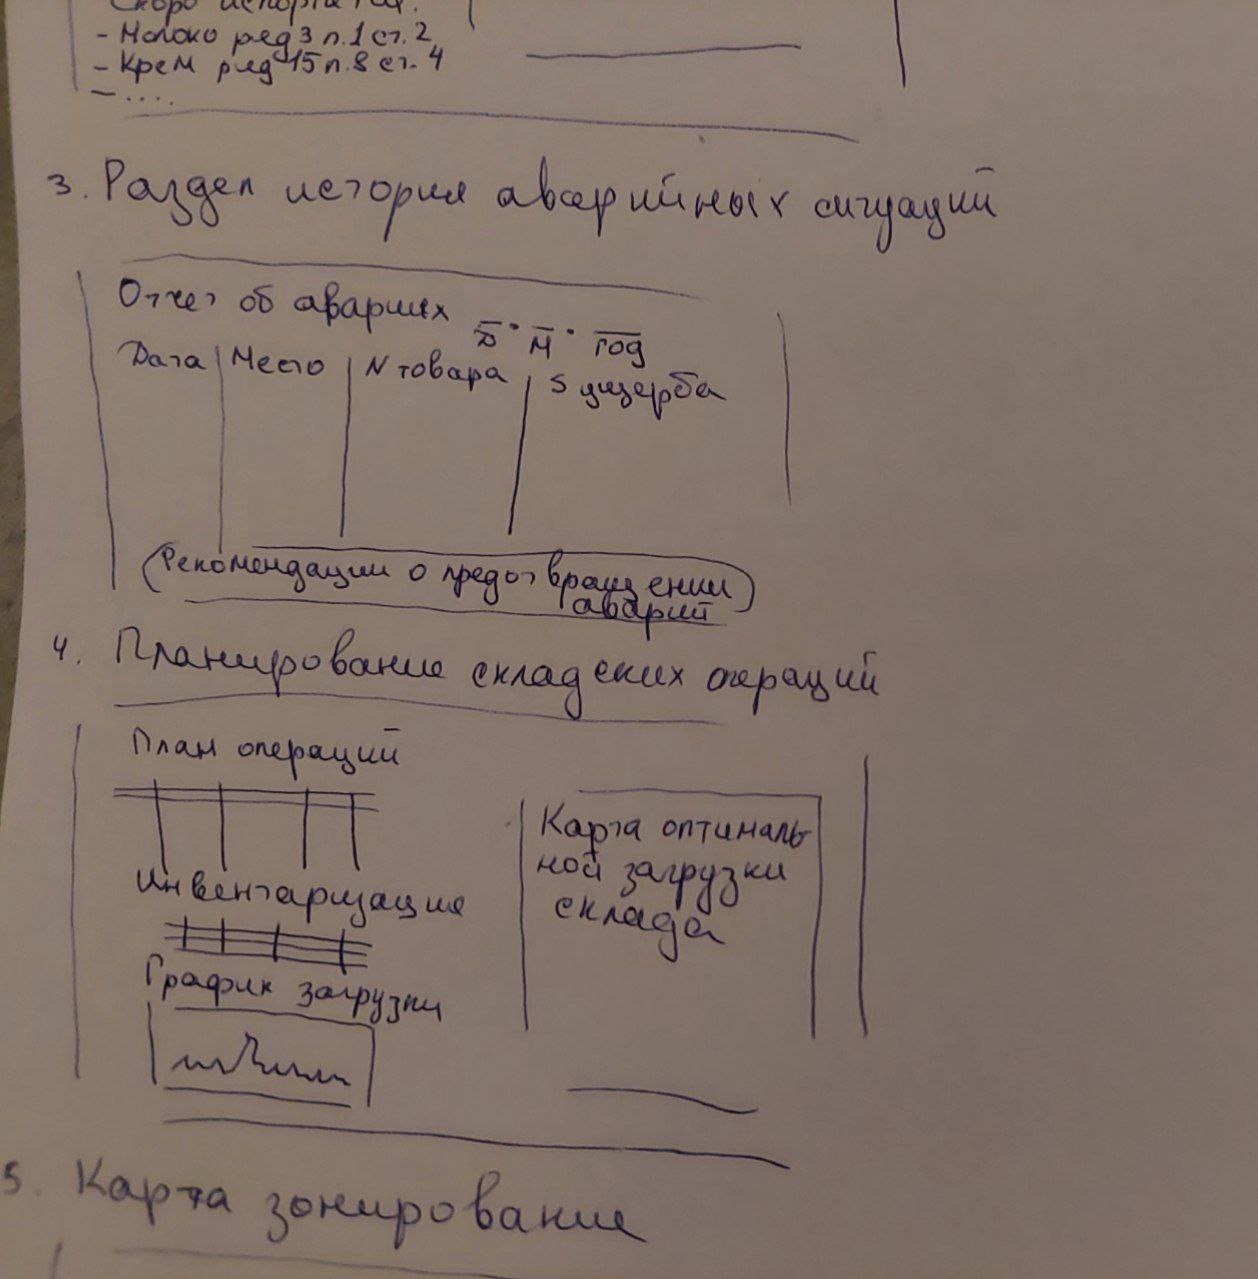 Скоро испортится:
- Молоко ряд 3 п.1 ст.2
- Крем ряд 15 п.8 ст.4
- ....
3. Раздел история аварийных ситуаций
Отчет об авариях Д. М. год
Дата Место N товара S ущерба
Рекомендации о предотвращении
аварий
4. Планирование складских операций
План операций
Инвентаризация
График загрузки
Карта оптималь
ной загрузки
склада
5. Карта зонирование